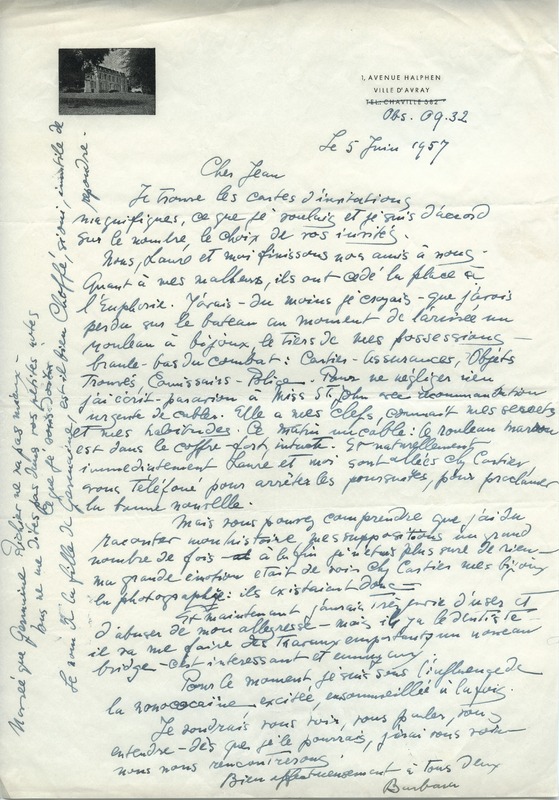 1, AVENUE HALPHEN
VILLE D'AVRAY
TEL. CHAVILLE 682
Obs. 09.32
Le 5 Juin 1957
Cher Jean
Je trouve les cartes d'invitations
magnifiques, ce que je voulais et je suis d'accord
sur le nombre, le choix de vos invités.
Nous, Laure et moi finissons nos amis à nous.
Quant à mes malheurs, ils ont cédé la place à
l'Euphorie. J'avais - du moins je croyais - que j'avais
perdu sur le bateau au moment de l'arrivée un
rouleau à bijoux, le tiers de mes possessions -
branle-bas du combat : Cartier - assurances, Objets
Trouvés, Commissaires - Police. Pour ne négliger rien
j'ai écrit - par avion à Miss St John
urgente de cabler. Elle a mes clefs, connait mes secrets
et mes habitudes. Ce matin un cable : le rouleau marron
est dans le coffre-fort, intact. Et naturellement
immédiatement Laure et moi sont allées chez Cartier
avons téléfoné pour arrêter les poursuites, pour proclamer
la bonne nouvelle.
Mais vous pouvez comprendre que j'ai du
raconter mon histoire, mes suppositions un grand
nombre de fois - à la fin je n'étais plus sure de rien -
ma grande émotion était de voir chez Cartier mes bijoux
en photographie : ils existaient donc -
Et maintenant j'aurais très envie d'user et
d'abuser de mon allégresse - mais il y a le dentiste -
il va me faire des travaux importants, un nouveau
bridge - c'est interessant et ennuyeux.
Pour le moment je suis sous l'influence de
la novocaïne - excitée, ensommeillée à la fois.
Je voudrais vous voir, vous parler, vous
entendre - dès que je le pourrais, j'irai vous voir
nous nous rencontrerons
Bien affectueusement à tous deux
Barbara
que Germaine Richier ne va pas mieux -
ne me dites pas dans vos petites notes
ce que je vous dois
Le nom de la fille de Germaine est-il bien Choffé, si oui, inutile de
répondre -